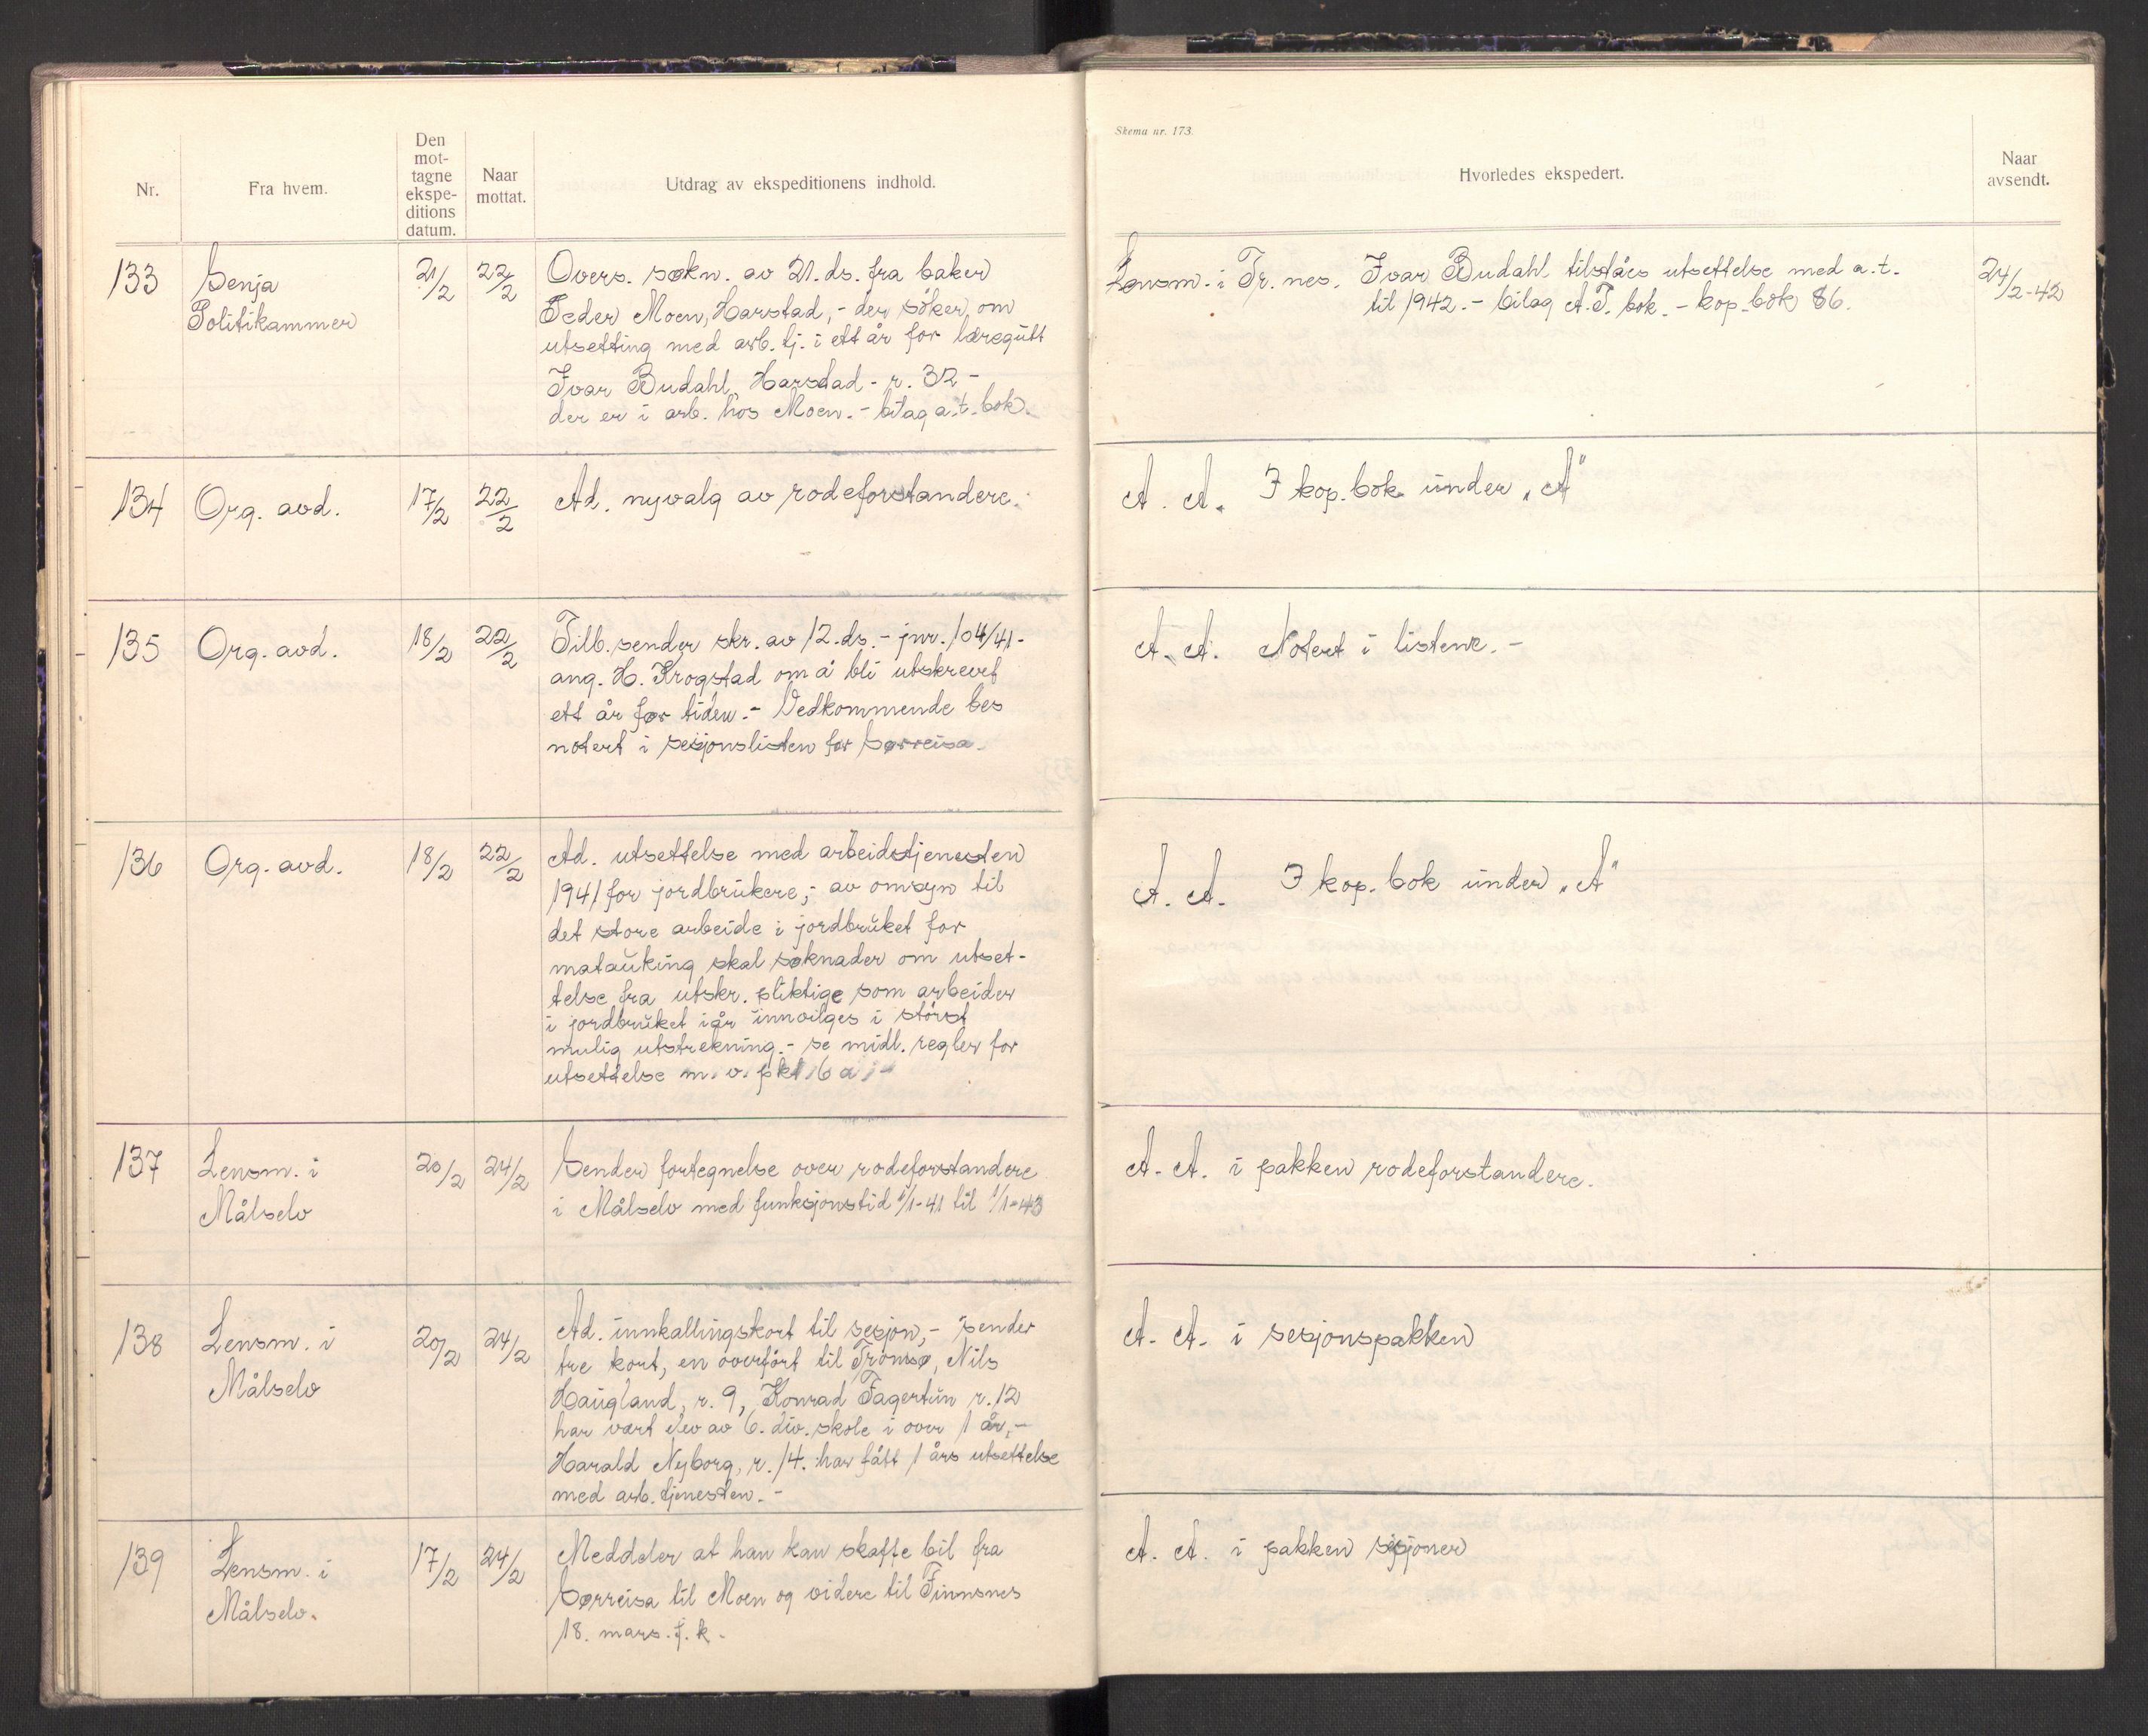 Skema nr. 173.
Nr.
Fra hvem.
Den
mot-
tagne
ekspe-
ditions
datum.
Naar
mottat.
Utdrag av ekspeditionens indhold.
Hvorledes ekspedert.
Naar
avsendt.
133
Senja
Politikammer
21/2
22/2
Overs. søkn. av 21. ds. fra baker
Peder Moen, Harstad, - der søker om
utsetting med arb. tj. i ett år for læregutt
Ivar Budahl, Harstad - r. 32 -
der er i arb. hos Moen. - bilag a.t. bok.
Lensm. i Tr. nes. Ivar Budahl tilståes utsettelse med a.t.
til 1942. - bilag A.T. bok. - kop. bok 86.
24/2-42
134
Org. avd.
17/2
22/2
Ad. nyvalg av rodeforstandere.
A. A. I kop. bok under „A"
135
Org. avd.
18/2
22/2
Tilb. sender skr. av 12. ds. - jnr. 104/41 -
ang. H. Krogstad om å bli utskrevet
ett år før tiden. - Vedkommende bes
notert i sesjonslisten for Sørreisa.
A. A. Notert i listene. -
136
Org. avd.
18/2
22/2
Ad. utsettelse med arbeidstjenesten
1941 for jordbrukere, - av omsyn til
det store arbeide i jordbruket for
matauking skal søknader om utset-
telse fra utskr. pliktige som arbeider
i jordbruket i år innvilges i størst
mulig utstrekning. - se midl. regler for
utsettelse m. v. pkt 6 a, -
A. A. I kop. bok under „A"
137
Lensm. i
Målselv
20/2
24/2
Sender fortegnelse over rodeforstandere
i Målselv med funksjonstid 1/1-41 til 1/1-43
A. A. i pakken rodeforstandere.
138
Lensm. i
Målselv
20/2
24/2
Ad. innkallingskort til sesjon, - sender
tre kort, en overført til Tromsø, Nils
Haugland, r. 9, Konrad Fagertun r. 12
har vært elev av 6. div. skole i over 1 år, -
Harald Nyborg, r. 14. har fått 1 års utsettelse
med arb. tjenesten. -
A. A. i sesjonspakken
139
Lensm. i
Målselv.
17/2
24/2
Meddeler at han kan skaffe bil fra
Sørreisa til Moen og videre til Finnsnes
18. mars. f. k.
A. A. i pakken sesjoner